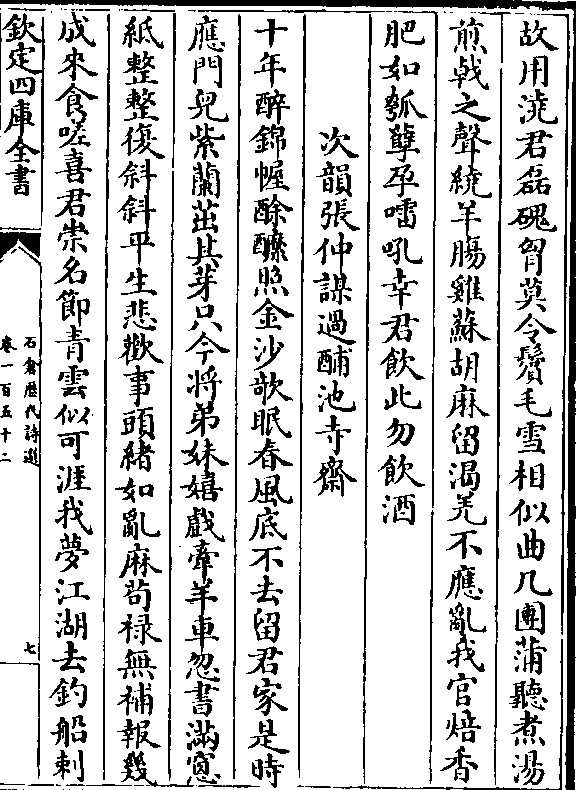 故用澆君磊磈胷莫令鬢毛雪相似曲几團蒲聽煮湯
煎成車聲繞羊腸雞蘇胡麻留渴羌不應亂我官焙香
肥如瓠壺鼻雷吼幸君飲此勿飲酒
次韻張仲謀過酺池寺齋
十年醉錦幄酴醿照金沙欹眠春風底不去留君家是時
應門兒紫蘭茁其芽只今將弟妹嬉戲牽羊車忽書滿窓
紙整整復斜斜平生悲歡事頭緒如亂麻茍禄無補報幾
成來食嗟喜君崇名節青雲似可涯我夢江湖去釣船刺
欽定四庫全書
石倉歴代詩選
卷一百五十二
七